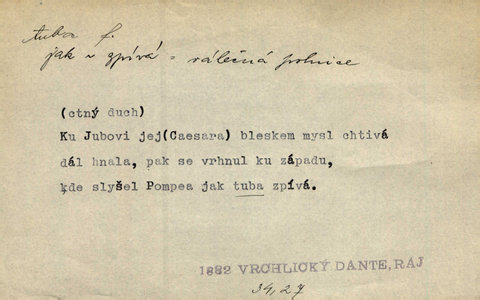 tuba f.
jak v zpívá = válečná polnice
(ctný duch)
Ku Jubovi jej(Caesara) bleskem mysl chtivá
dál hnala, pak se vrhnul ku západu,
kde slyšel Pompea jak tuba zpívá.
1882 VRCHLICKÝ DANTE, RÁJ
34,27